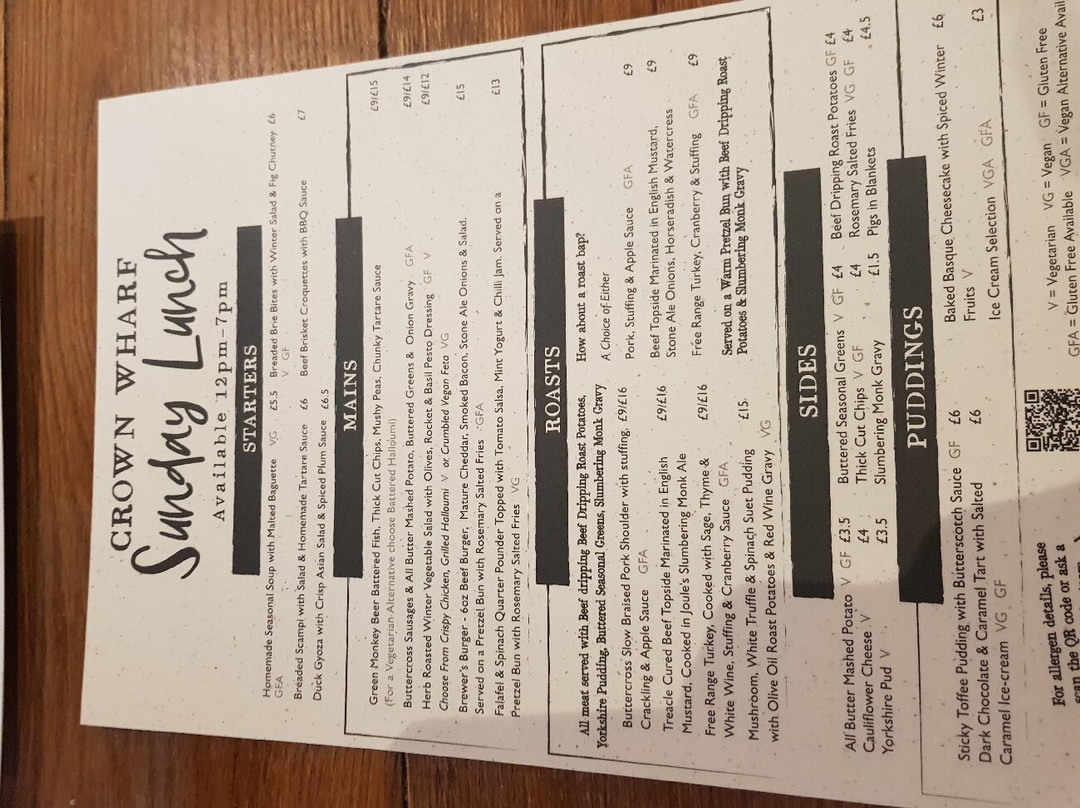 CROWN WHARF
Sunday Lunch
Available 12pm-7pm
STARTERS
Homemade Seasonal Soup with Malted Baguette VG £5.5
GFA
Breaded Scampi with Salad & Homemade Tartare Sauce £6
Duck Gyoza with Crisp Asian Salad & Spiced Plum Sauce £6.5
Breaded Brie Bites with Winter Salad & Fig Chutney £6
V GF
Beef Brisket Croquettes with BBQ Sauce £7
MAINS
Green Monkey Beer Battered Fish, Thick Cut Chips, Mushy Peas, Chunky Tartare Sauce £9/£15
(For a Vegetarian Alternative choose Battered Halloumi)
Buttercross Sausages & All Butter Mashed Potato, Buttered Greens & Onion Gravy GFA £9/£14
Herb Roasted Winter Vegetable Salad with Olives, Rocket & Basil Pesto Dressing GF V £9/£12
Choose From Crispy Chicken, Grilled Halloumi V or Crumbled Vegan Feta VG
Brewer's Burger - 6oz Beef Burger, Mature Cheddar, Smoked Bacon, Stone Ale Onions & Salad. £15
Served on a Pretzel Bun with Rosemary Salted Fries GFA
Falafel & Spinach Quarter Pounder Topped with Tomato Salsa, Mint Yogurt & Chilli Jam. Served on a £13
Pretzel Bun with Rosemary Salted Fries VG
ROASTS
All meat served with Beef dripping Beef Dripping Roast Potatoes,
Yorkshire Pudding, Buttered Seasonal Greens, Slumbering Monk Gravy
Buttercross Slow Braised Pork Shoulder with stuffing, £9/£16
Crackling & Apple Sauce GFA
Treacle Cured Beef Topside Marinated in English £9/£16
Mustard, Cooked in Joule's Slumbering Monk Ale
Free Range Turkey, Cooked with Sage, Thyme & £9/£16
White Wine, Stuffing & Cranberry Sauce GFA
Mushroom, White Truffle & Spinach Suet Pudding £15
with Olive Oil Roast Potatoes & Red Wine Gravy VG
How about a roast bap?
A Choice of Either
Pork, Stuffing & Apple Sauce GFA £9
Beef Topside Marinated in English Mustard, £9
Stone Ale Onions, Horseradish & Watercress
Free Range Turkey, Cranberry & Stuffing GFA £9
Served on a Warm Pretzel Bun with Beef Dripping Roast
Potatoes & Slumbering Monk Gravy
SIDES
All Butter Mashed Potato V GF £3.5
Cauliflower Cheese V £4
Yorkshire Pud V £3.5
Buttered Seasonal Greens V GF £4
Thick Cut Chips V GF £4
Slumbering Monk Gravy £1.5
Beef Dripping Roast Potatoes GF £4
Rosemary Salted Fries VG GF £4
Pigs in Blankets £4.5
PUDDINGS
Sticky Toffee Pudding with Butterscotch Sauce GF £6
Dark Chocolate & Caramel Tart with Salted £6
Caramel Ice-cream VG GF
Baked Basque Cheesecake with Spiced Winter £6
Fruits V
Ice Cream Selection VGA GFA £3
For allergen details, please
scan the QR code or ask a
V = Vegetarian VG = Vegan GF = Gluten Free
GFA = Gluten Free Available VGA = Vegan Alternative Avail